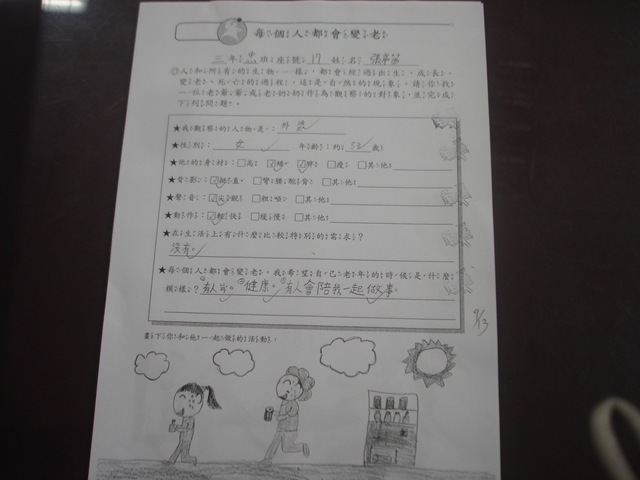 每個人都會變老
三年忠班座號17姓名
◎人和所有的生物一樣，都會經過出生、成長、
變老、死亡的過程，這是自然的現象。請你找
一位老爺爺或老奶奶作為觀察的對象，並完成
下列問題。
★我觀察的人物是：外婆
★性別：女 年齡：約53歲
★他的身材：□高 ☑矮 ☑胖 □瘦 □其他：
★背影：☑挺直 □彎腰駝背 □其他：
★聲音：☑尖銳 □粗啞 □其他：
★動作：☑輕快 □緩慢 □其他：
★在生活上有什麼比較特別的需求？
沒有。
★每個人都會變老。我希望自己老年的時候是什麼
模樣？ 健康。有人會陪我一起做事。
9/13
畫下你和他一起做的活動：